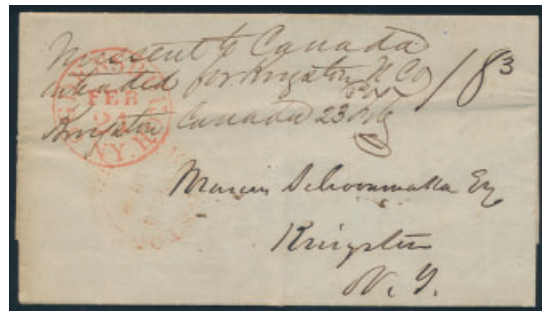 Missent to Canada
intended for Kingston U Co 18 3
Kingston Canada 23 Feby
OGDENSBURGH
FEB
21
N.Y.
Marius Schoonmaker Esq
Kingston
N. Y.